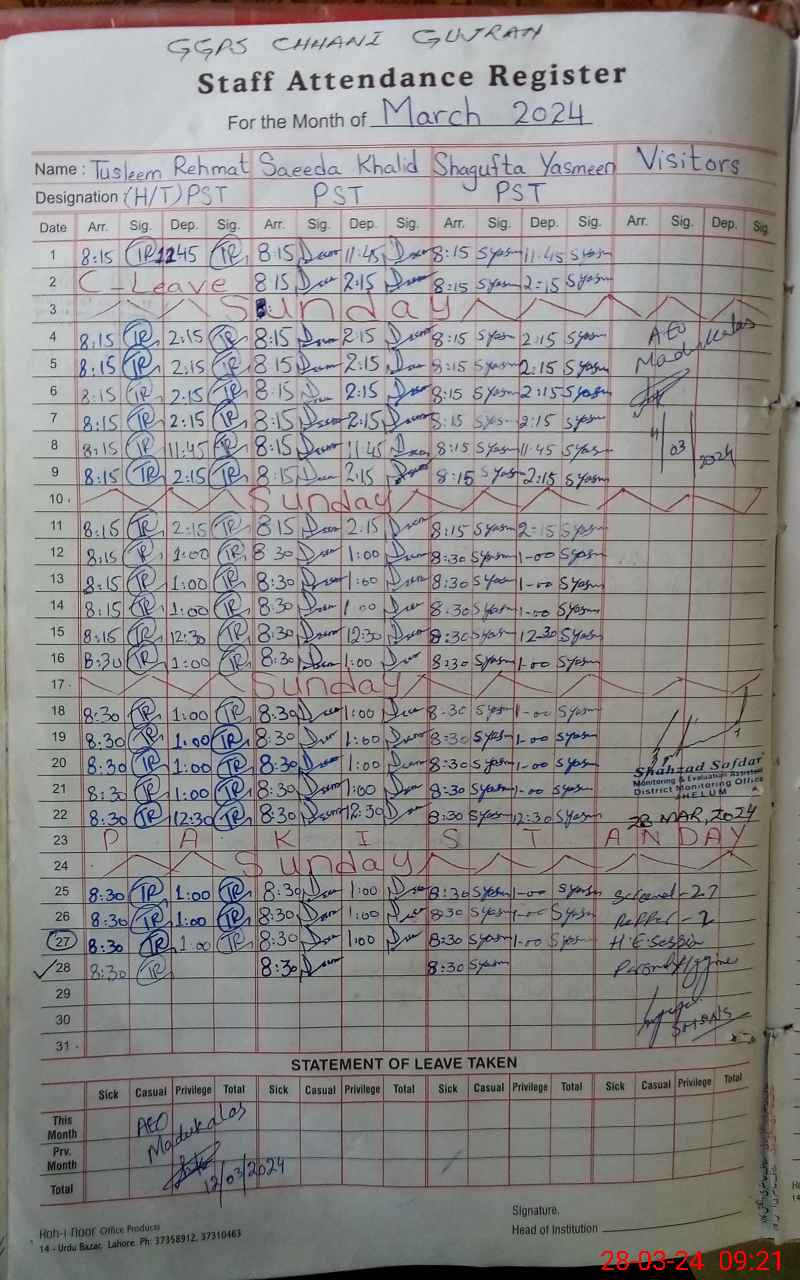 GGPS CHHANI GUJRAN
Staff Attendance Register
For the Month of March 2024
Name : Tusleem Rehmat Saeeda Khalid Shagufta Yasmeen Visitors
Designation (H/T) PST PST PST
Date Arr. Sig. Dep. Sig. Arr. Sig. Dep. Sig. Arr. Sig. Dep. Sig. Arr. Sig. Dep. Sig.
1 8:15 TR 1245 TR 8:15 11:45 8:15 Syasm 11:45 Syasm
2 C-Leave 8:15 2:15 8:15 Syasm 2:15 Syasm
3 Sunday
4 8:15 TR 2:15 TR 8:15 2:15 8:15 Syasm 2:15 Syasm AEO
5 8:15 TR 2:15 TR 8:15 2:15 8:15 Syasm 2:15 Syasm Madukalas
6 8:15 TR 2:15 TR 8:15 2:15 8:15 Syasm 2:15 Syasm
7 8:15 TR 2:15 TR 8:15 2:15 8:15 Syasm 2:15 Syasm
8 8:15 TR 11:45 TR 8:15 11:45 8:15 Syasm 11:45 Syasm 03
9 8:15 TR 2:15 TR 8:15 2:15 8:15 Syasm 2:15 Syasm 2024
10 Sunday
11 8:15 TR 2:15 TR 8:15 2:15 8:15 Syasm 2:15 Syasm
12 8:15 TR 1:00 TR 8:30 1:00 8:30 Syasm 1-00 Syasm
13 8:15 TR 1:00 TR 8:30 1:00 8:30 Syasm 1-00 Syasm
14 8:15 TR 1:00 TR 8:30 1:00 8:30 Syasm 1-00 Syasm
15 8:15 TR 12:30 TR 8:30 12:30 8:30 Syasm 12-30 Syasm
16 8:30 TR 1:00 TR 8:30 1:00 8:30 Syasm 1-00 Syasm
17 Sunday
18 8:30 TR 1:00 TR 8:30 1:00 8-30 Syasm 1-00 Syasm
19 8:30 TR 1:00 TR 8:30 1:00 8:30 Syasm 1-00 Syasm
20 8:30 TR 1:00 TR 8:30 1:00 8:30 Syasm 1-00 Syasm Shahzad Safdar
Monitoring & Evaluation Assistant
21 8:30 TR 1:00 TR 8:30 1:00 8:30 Syasm 1-00 Syasm District Monitoring Office
JHELUM
22 8:30 TR 12:30 TR 8:30 12:30 8:30 Syasm 12:30 Syasm 28 MAR, 2024
23 PAKISTAN DAY
24 Sunday
25 8:30 TR 1:00 TR 8:30 1:00 8:30 Syasm 1-00 Syasm
26 8:30 TR 1:00 TR 8:30 1:00 8:30 Syasm 1-00 Syasm
27 8:30 TR 1:00 TR 8:30 1:00 8:30 Syasm 1-00 Syasm
28 8:30 TR 8:30 8:30 Syasm
29
30
31
STATEMENT OF LEAVE TAKEN
Sick Casual Privilege Total Sick Casual Privilege Total Sick Casual Privilege Total Sick Casual Privilege Total
This Month AEO
Prv. Month Madukalas
Total 12/03/2024
Koh-i-noor Office Products
14 - Urdu Bazar, Lahore. Ph: 37358912, 37310463
Signature.
Head of Institution
28-03-24 09:21